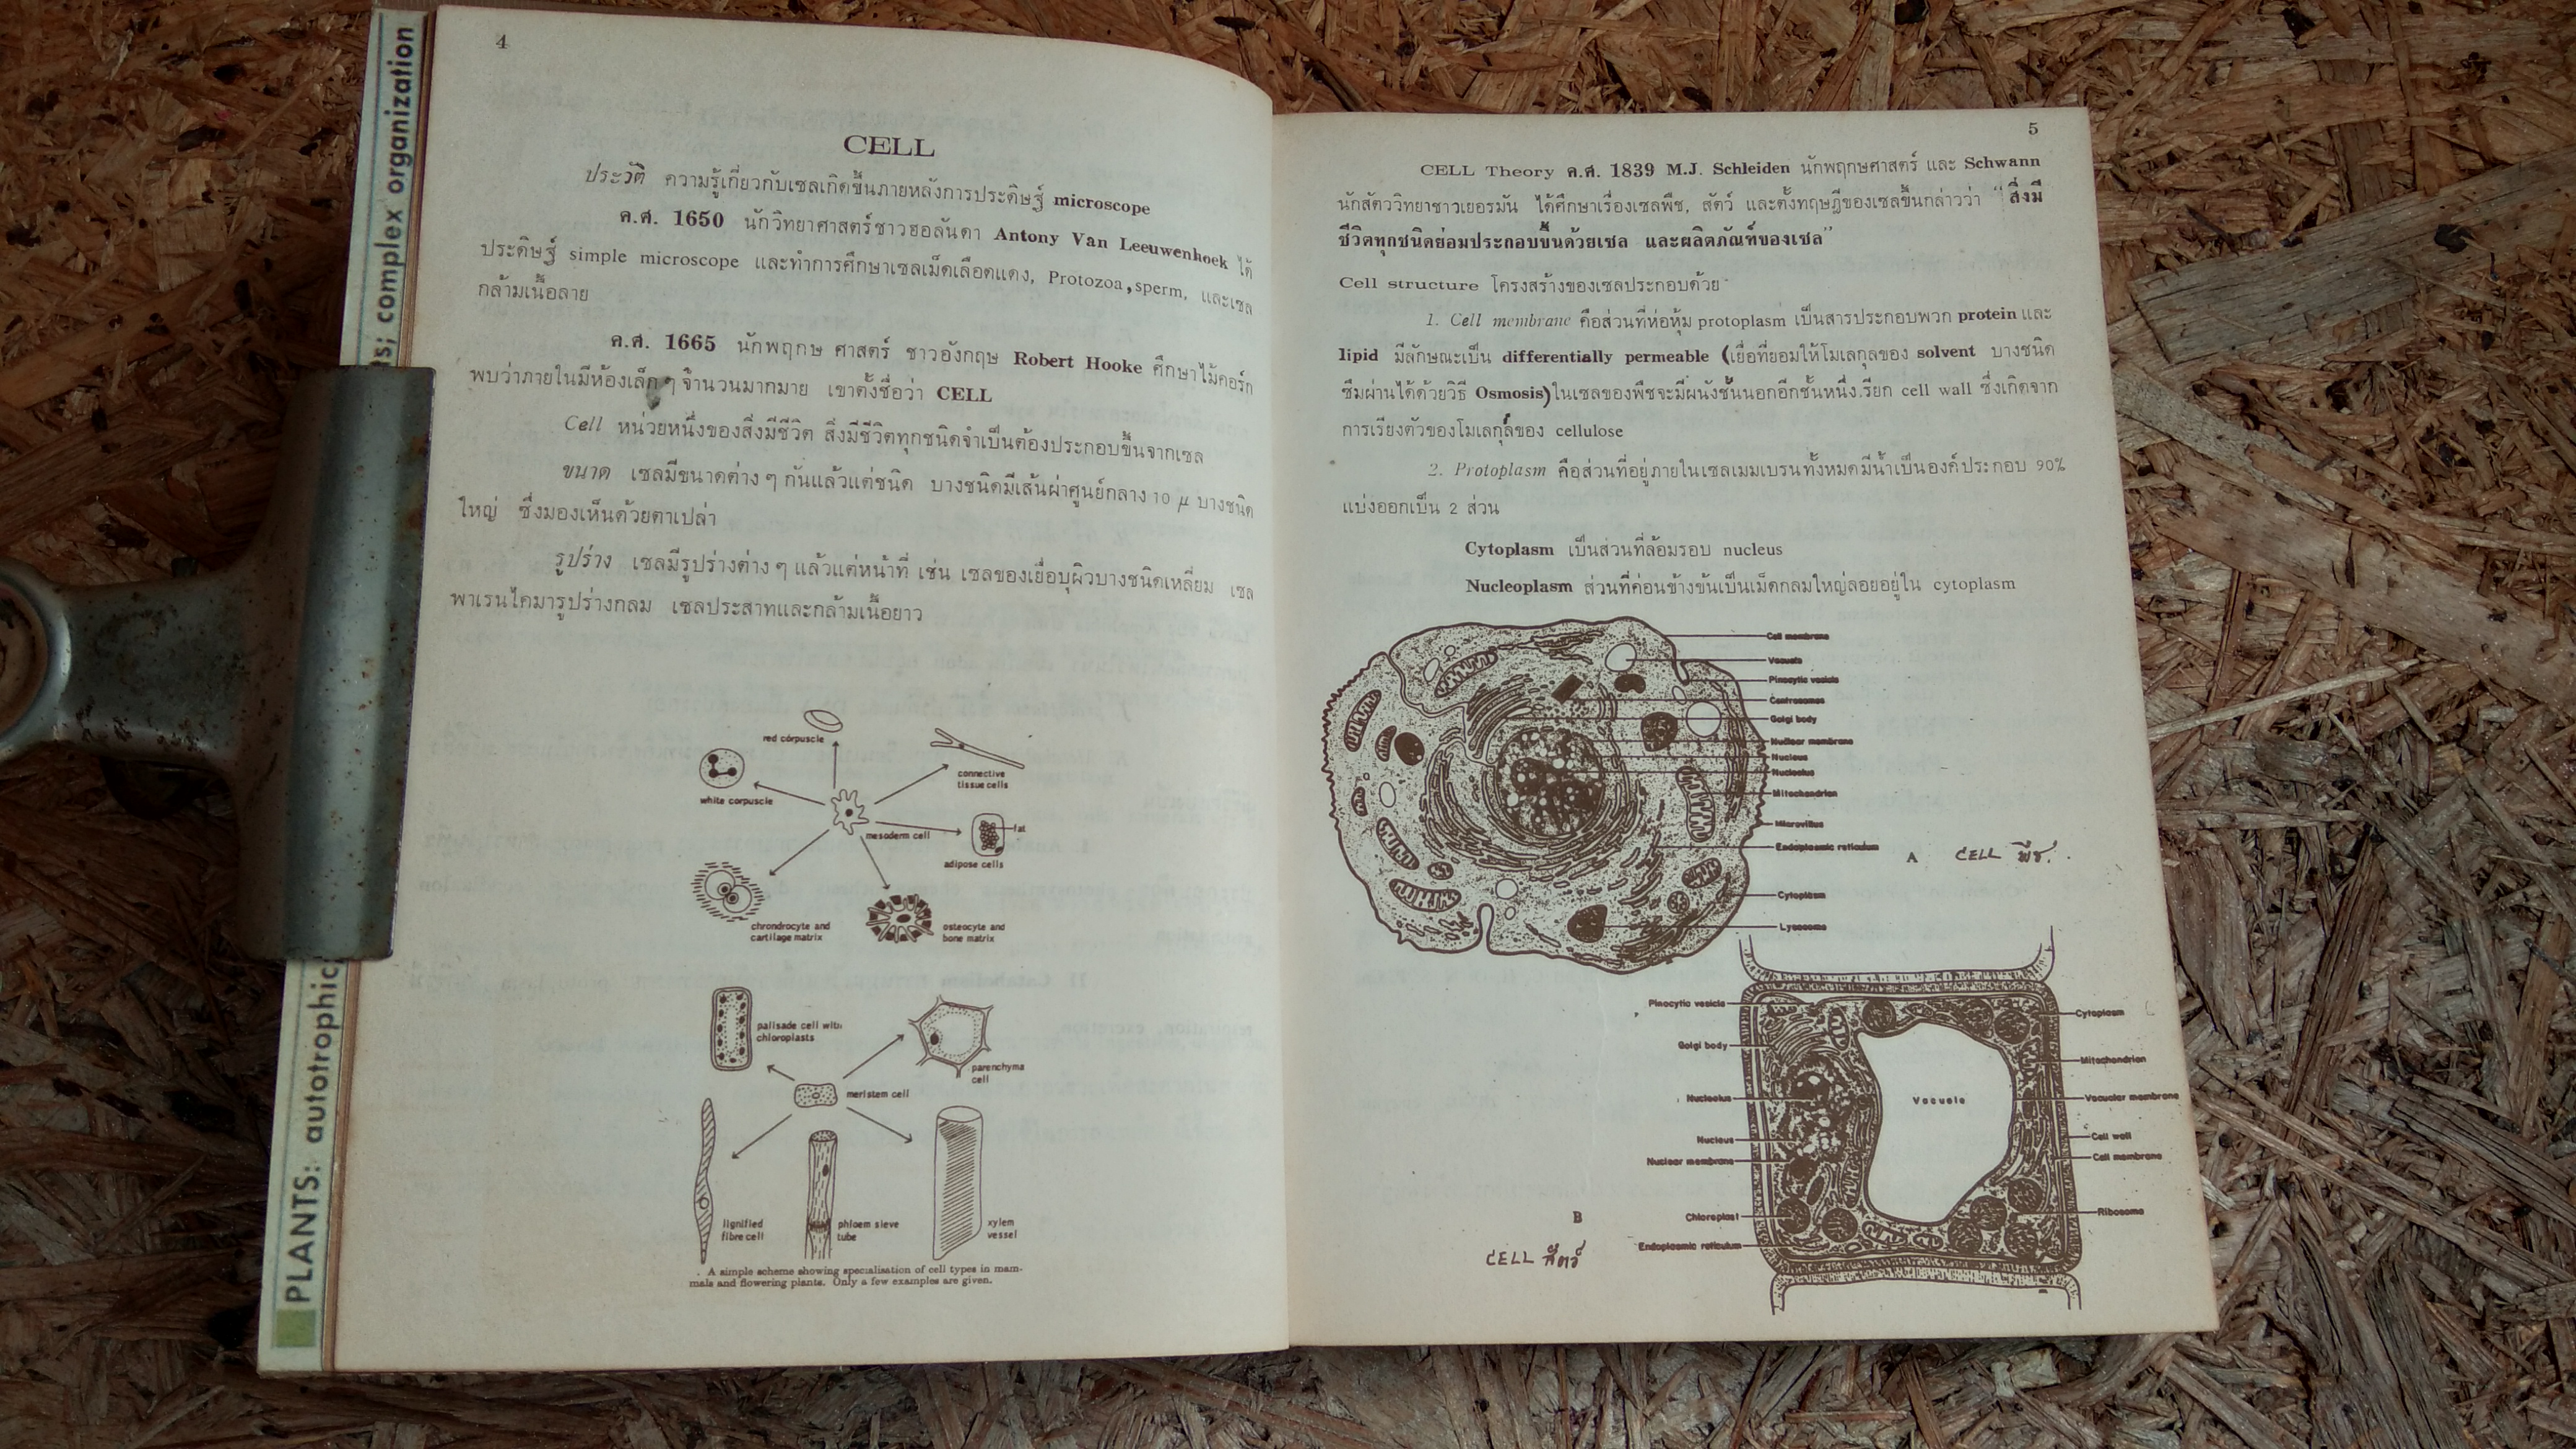 PLANTS: autotrophic
s; complex organization
4
CELL
ประวัติ ความรู้เกี่ยวกับเซลเกิดขึ้นภายหลังการประดิษฐ์ microscope
ค.ศ. 1650 นักวิทยาศาสตร์ชาวฮอลันดา Antony Van Leeuwenhoek ได้
ประดิษฐ์ simple microscope และทำการศึกษาเซลเม็ดเลือดแดง, Protozoa, sperm, และเซล
กล้ามเนื้อลาย
ค.ศ. 1665 นักพฤกษ ศาสตร์ ชาวอังกฤษ Robert Hooke ศึกษาไม้คอร์ก
พบว่าภายในมีห้องเล็ก ๆ จำนวนมากมาย เขาตั้งชื่อว่า CELL
Cell หน่วยหนึ่งของสิ่งมีชีวิต สิ่งมีชีวิตทุกชนิดจำเป็นต้องประกอบขึ้นจากเซล
ขนาด เซลมีขนาดต่าง ๆ กันแล้วแต่ชนิด บางชนิดมีเส้นผ่าศูนย์กลาง 10 μ บางชนิด
ใหญ่ ซึ่งมองเห็นด้วยตาเปล่า
รูปร่าง เซลมีรูปร่างต่าง ๆ แล้วแต่หน้าที่ เช่น เซลของเยื่อบุผิวบางชนิดเหลี่ยม เซล
พาเรนไคมารูปร่างกลม เซลประสาทและกล้ามเนื้อยาว
red corpuscle
connective
tissue cells
white corpuscle
mesoderm cell
fat
adipose cells
chrondrocyte and
cartilage matrix
osteocyte and
bone matrix
palisade cell with
chloroplasts
parenchyma
cell
meristem cell
lignified
fibre cell
phloem sieve
tube
xylem
vessel
. A simple scheme showing specialisation of cell types in mam-
mals and flowering plants. Only a few examples are given.
5
CELL Theory ค.ศ. 1839 M.J. Schleiden นักพฤกษศาสตร์ และ Schwann
นักสัตววิทยาชาวเยอรมัน ได้ศึกษาเรื่องเซลพืช, สัตว์ และตั้งทฤษฎีของเซลขึ้นกล่าวว่า “สิ่งมี
ชีวิตทุกชนิดย่อมประกอบขึ้นด้วยเซล และผลิตภัณฑ์ของเซล”
Cell structure โครงสร้างของเซลประกอบด้วย
1. Cell membrane คือส่วนที่ห่อหุ้ม protoplasm เป็นสารประกอบพวก protein และ
lipid มีลักษณะเป็น differentially permeable (เยื่อที่ยอมให้โมเลกุลของ solvent บางชนิด
ซึมผ่านได้ด้วยวิธี Osmosis) ในเซลของพืชจะมีผนังชั้นนอกอีกชั้นหนึ่ง.รียก cell wall ซึ่งเกิดจาก
การเรียงตัวของโมเลกุลของ cellulose
2. Protoplasm คือส่วนที่อยู่ภายในเซลเมมเบรนทั้งหมดมีน้ำเป็นองค์ประกอบ 90%
แบ่งออกเป็น 2 ส่วน
Cytoplasm เป็นส่วนที่ล้อมรอบ nucleus
Nucleoplasm ส่วนที่ค่อนข้างข้นเป็นเม็ดกลมใหญ่ลอยอยู่ใน cytoplasm
Cell membrane
Vacuole
Pinocytic vesicle
Centrosomes
Golgi body
Nuclear membrane
Nucleus
Nucleolus
Mitochondrion
Microvillus
Endoplasmic reticulum
A CELL พืช.
Cytoplasm
Lysosome
Pinocytic vesicle
Cytoplasm
Golgi body
Mitochondrion
Nucleolus
Vacuole
Vacuolar membrane
Nucleus
Cell wall
Nuclear membrane
Cell membrane
Chloroplast
Ribosome
Endoplasmic reticulum
B
CELL สัตว์